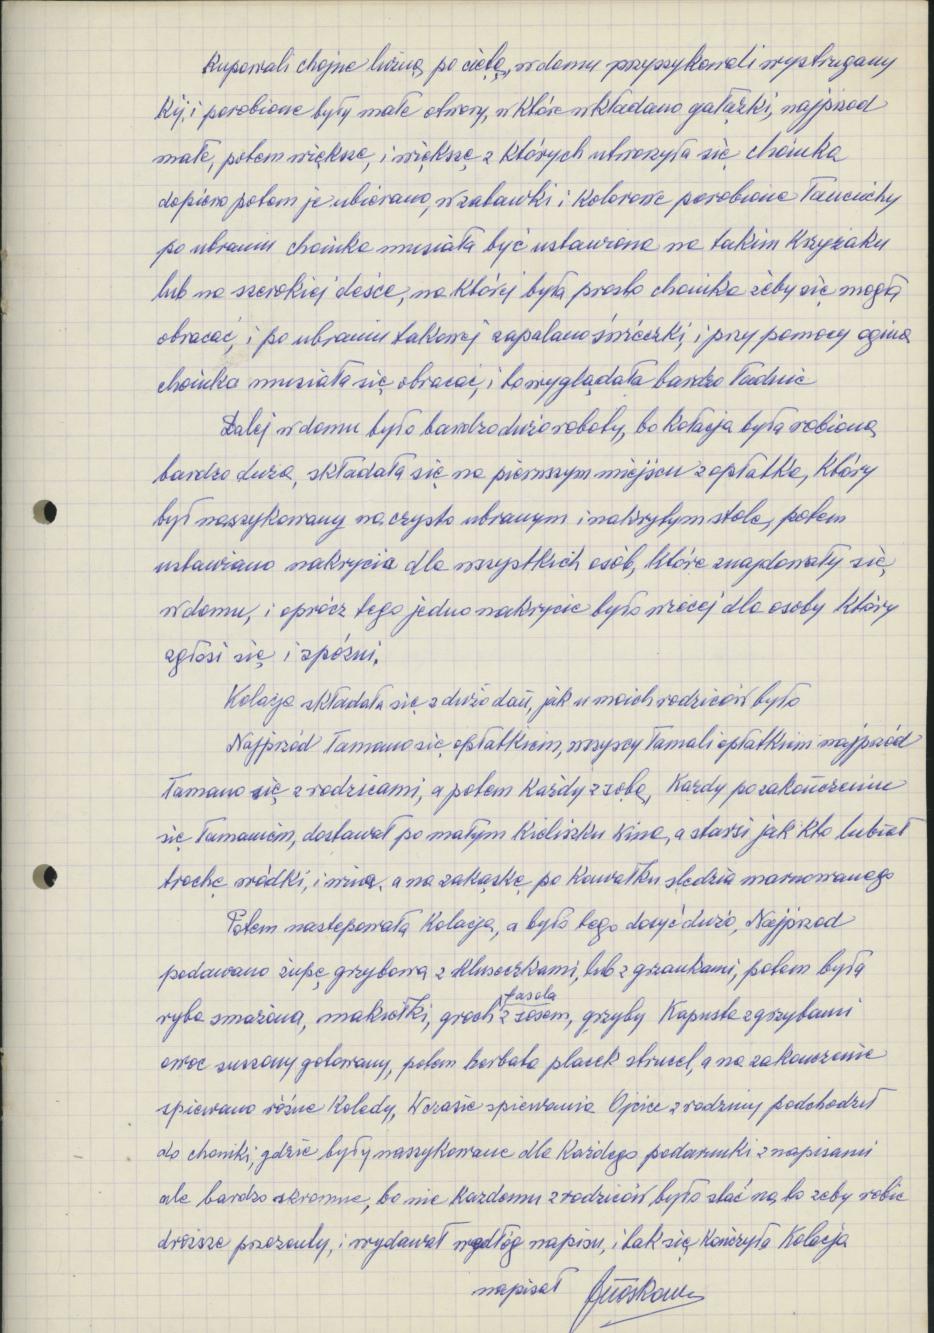 Kupowali chojne luźną po ciętą, w domu przyszykowali wystrugany
Kij, i porobione były małe otwory, w które wkładano gałązki, najpirod
małe, potem większe, i większe z których utworzyła się choinka
dopiero potem je ubierano, w zabawki i kolorowe porobione łańcuchy
po ubraniu choinka musiała być ustawiona na takim Krzyżaku
lub na szerokiej desce, na której była prosto choinka żeby się mogła
obracać, i po ubraniu takowej zapalano świeczki, i przy pomocy ognia
choinka musiała się obracać, i to wyglądała bardzo ładnie
Dalej w domu było bardzo dużo roboty, bo kolacja była robiona,
bardzo duża, składała się na pierwszym miejscu z opłatka, Który
był naszykowany na czysto ubranym i nakrytym stole, potem
ustawiano nakrycia dla wszystkich osób, które znajdowały się,
w domu, i oprócz tego jedno nakrycie było więcej dla osoby Który
zgłosi się i spóźni.
Kolacja składała się z dużo dań, jak u moich rodziców było
Najpród łamano się opłatkiem, wszyscy łamali opłatkiem najpród
łamano się z rodzicami, a potem Każdy z sobą, Każdy po zakończeniu
się łamaniem, dostawał po małym Kieliszku Wina, a starsi jak Kto lubiał
trochę wódki, i wina, a na zakąskę po Kawałku śledzia marnowanego
Potem nastepowała Kolacja, a było tego dosyć dużo, Najpirod
podawano zupę grzybową z kluseczkami, lub z grzankami, potem była
fasola
ryba smażona, makiełki, groch z sosem, grzyby Kapusta z grzybami
owoc suszony gotowany, potem herbata placek strucel, a na zakonczenie
spiewano różne Kolędy, W czasie spiewania Ojciec z rodziny podchodził
do choinki, gdzie były naszykowane dla Każdego podarunki z napisami
ale bardzo skromne, bo nie Kazdemu z rodziców było stać na to zeby robic
droższe prezenty, i wydawał wedłóg napisu, i tak się Kończyła Kolacja
napisał